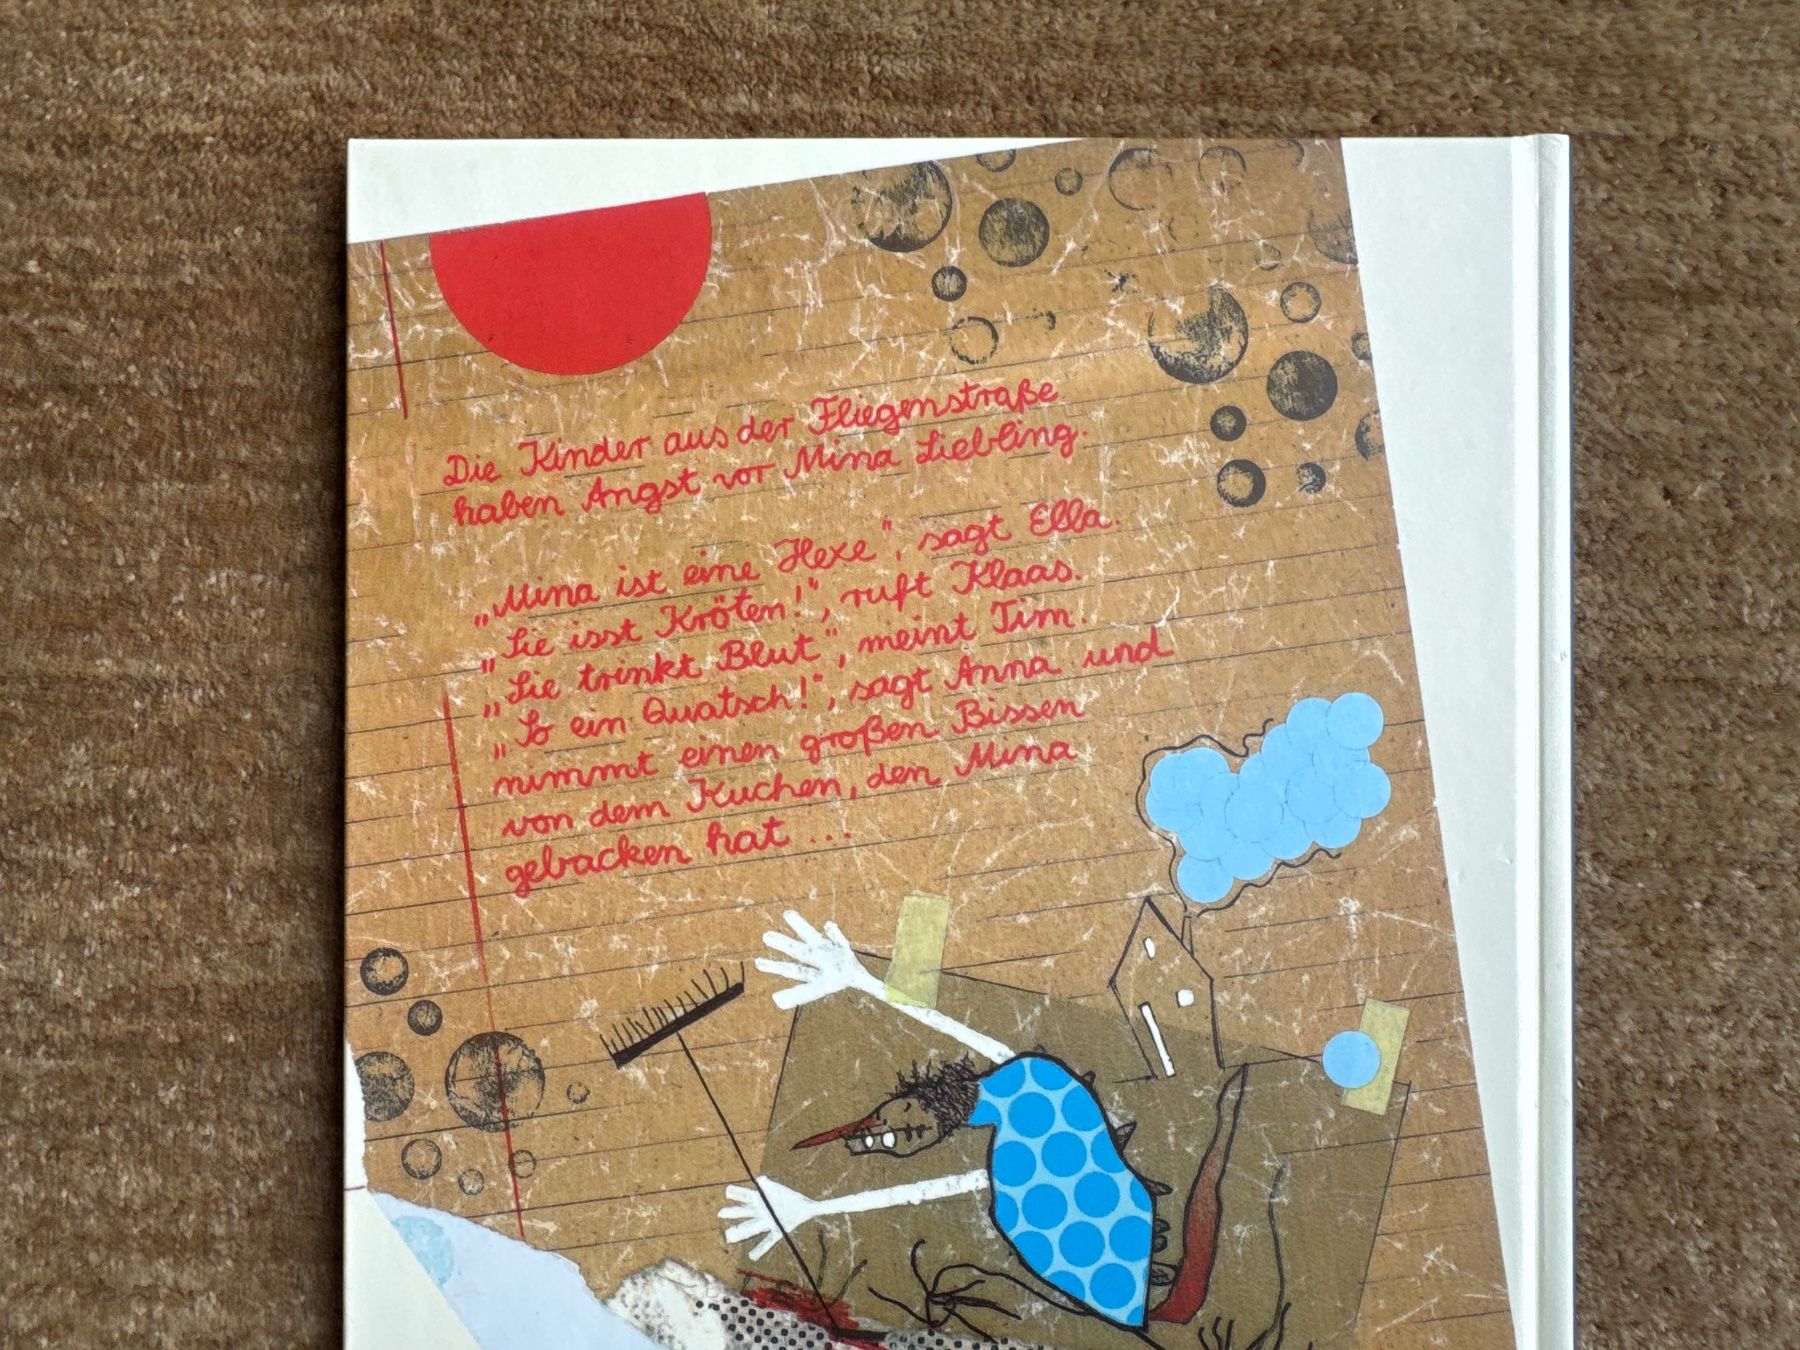 Die Kinder aus der Fliegenstraße
haben Angst vor Mina Liebling.
„Mina ist eine Hexe“, sagt Ella.
„Sie isst Kröten!“, ruft Klaas.
„Sie trinkt Blut“, meint Tim.
„So ein Quatsch!“, sagt Anna und
nimmt einen großen Bissen
von dem Kuchen, den Mina
gebacken hat ...